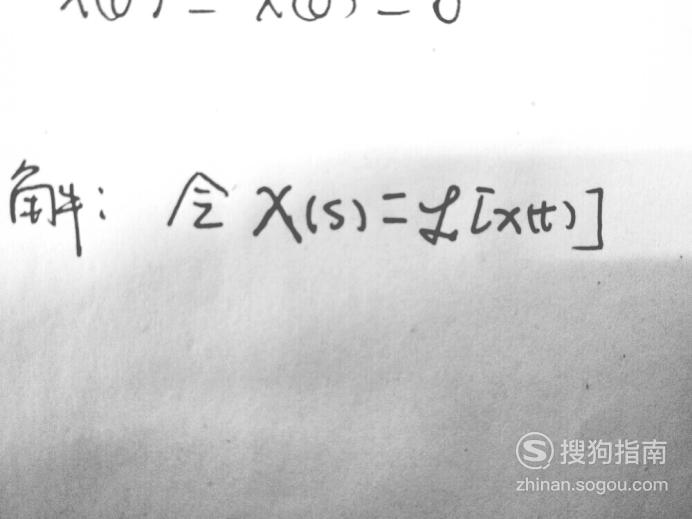 x(0) = x(0) = 0
解: 令 X(s) = ℒ[x(t)]
搜狗指南
zhinan.sogou.com